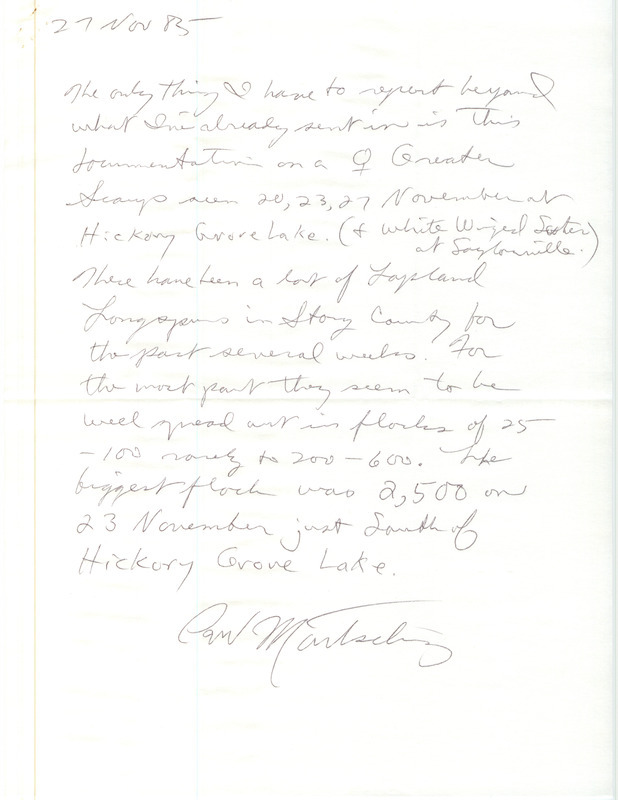 27 Nov 85
The only thing I have to report beyond
what I've already sent in is this
documentation on a ♀ Greater
Scaup seen 20, 23, 27 November at
Hickory Grove Lake. (& White Winged Scoter
at Saylorville.)
There have been a lot of Lapland
Longspurs in Story County for
the past several weeks. For
the most part they seem to be
well spread out in flocks of 25
-100 rarely to 200-600. The
biggest flock was 2,500 on
23 November just South of
Hickory Grove Lake.
Paul Martsching